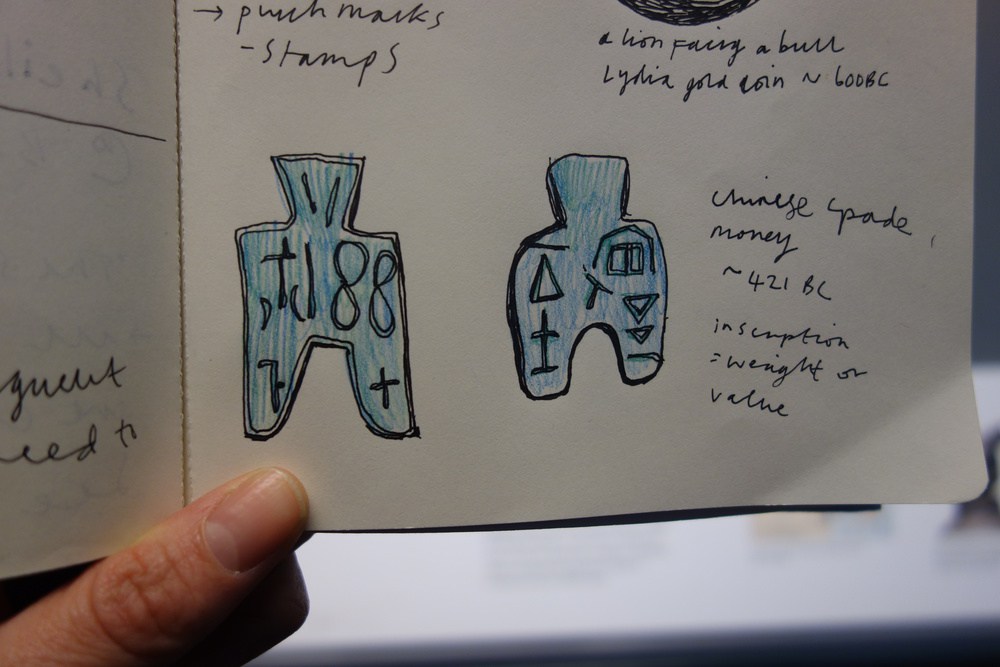 → punch marks
- stamps
a lion facing a bull
Lydia gold coin ~ 600BC
chinese spade
money
~ 421 BC
inscription
= weight or
value
need to